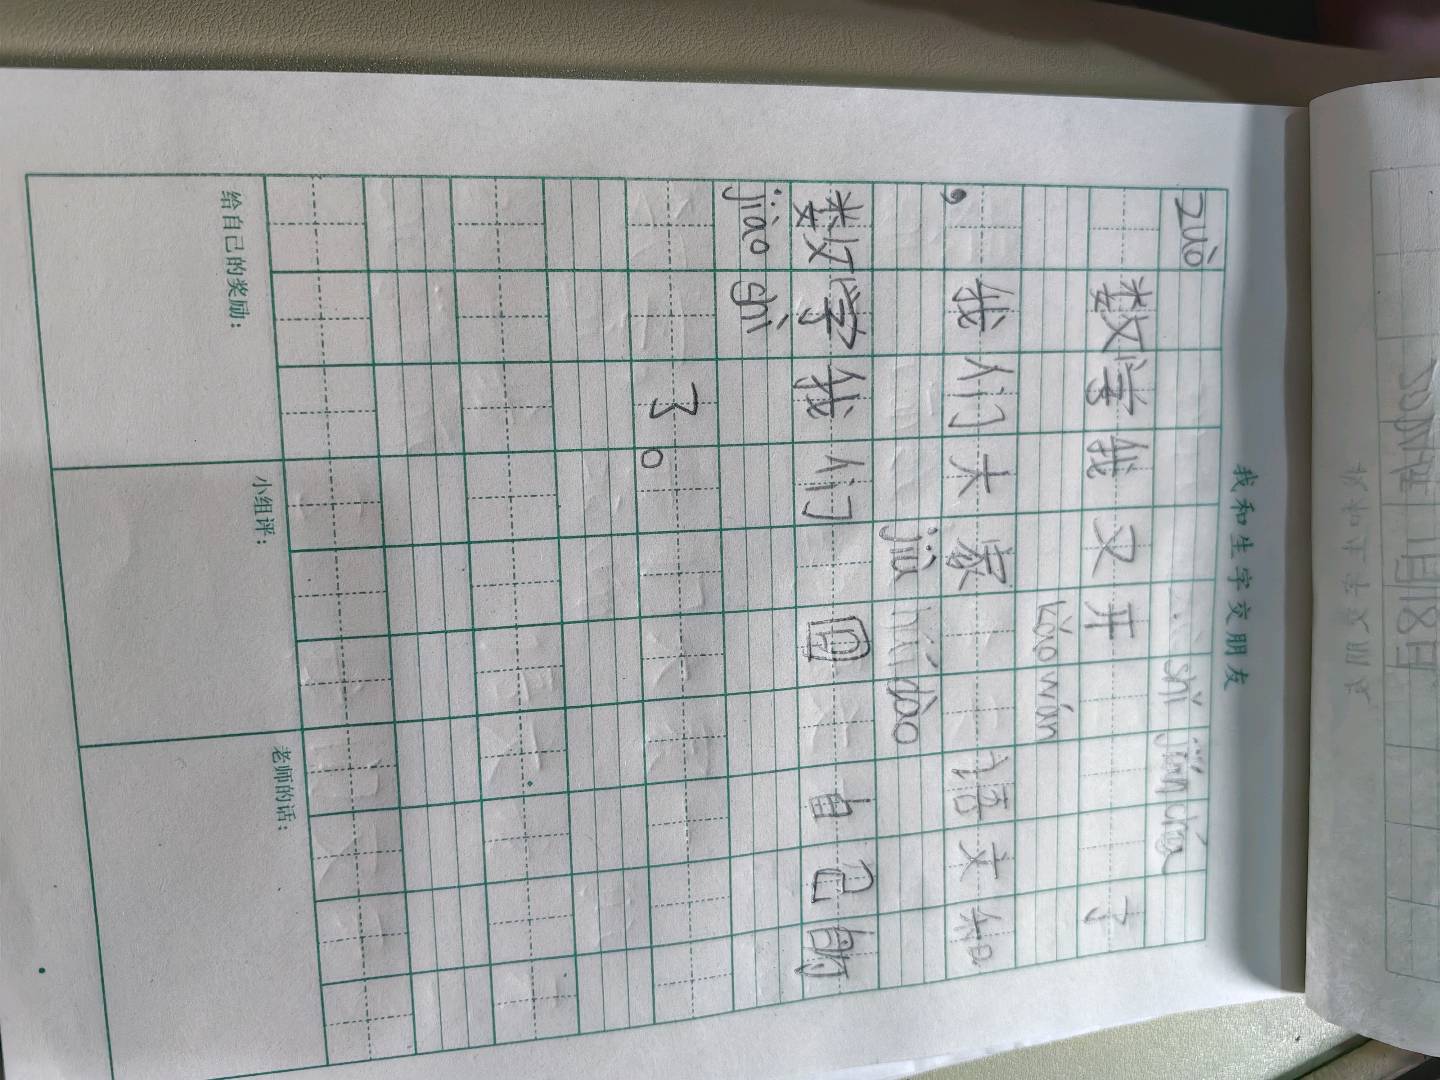 我和生字交朋友
zuò shǐ
数学我又开 了
kǎo wán
，我们大家 语文和
jiù huí dào
数学我们 回 自己的
jiào shì
了。
给自己的奖励： 小组评： 老师的话：